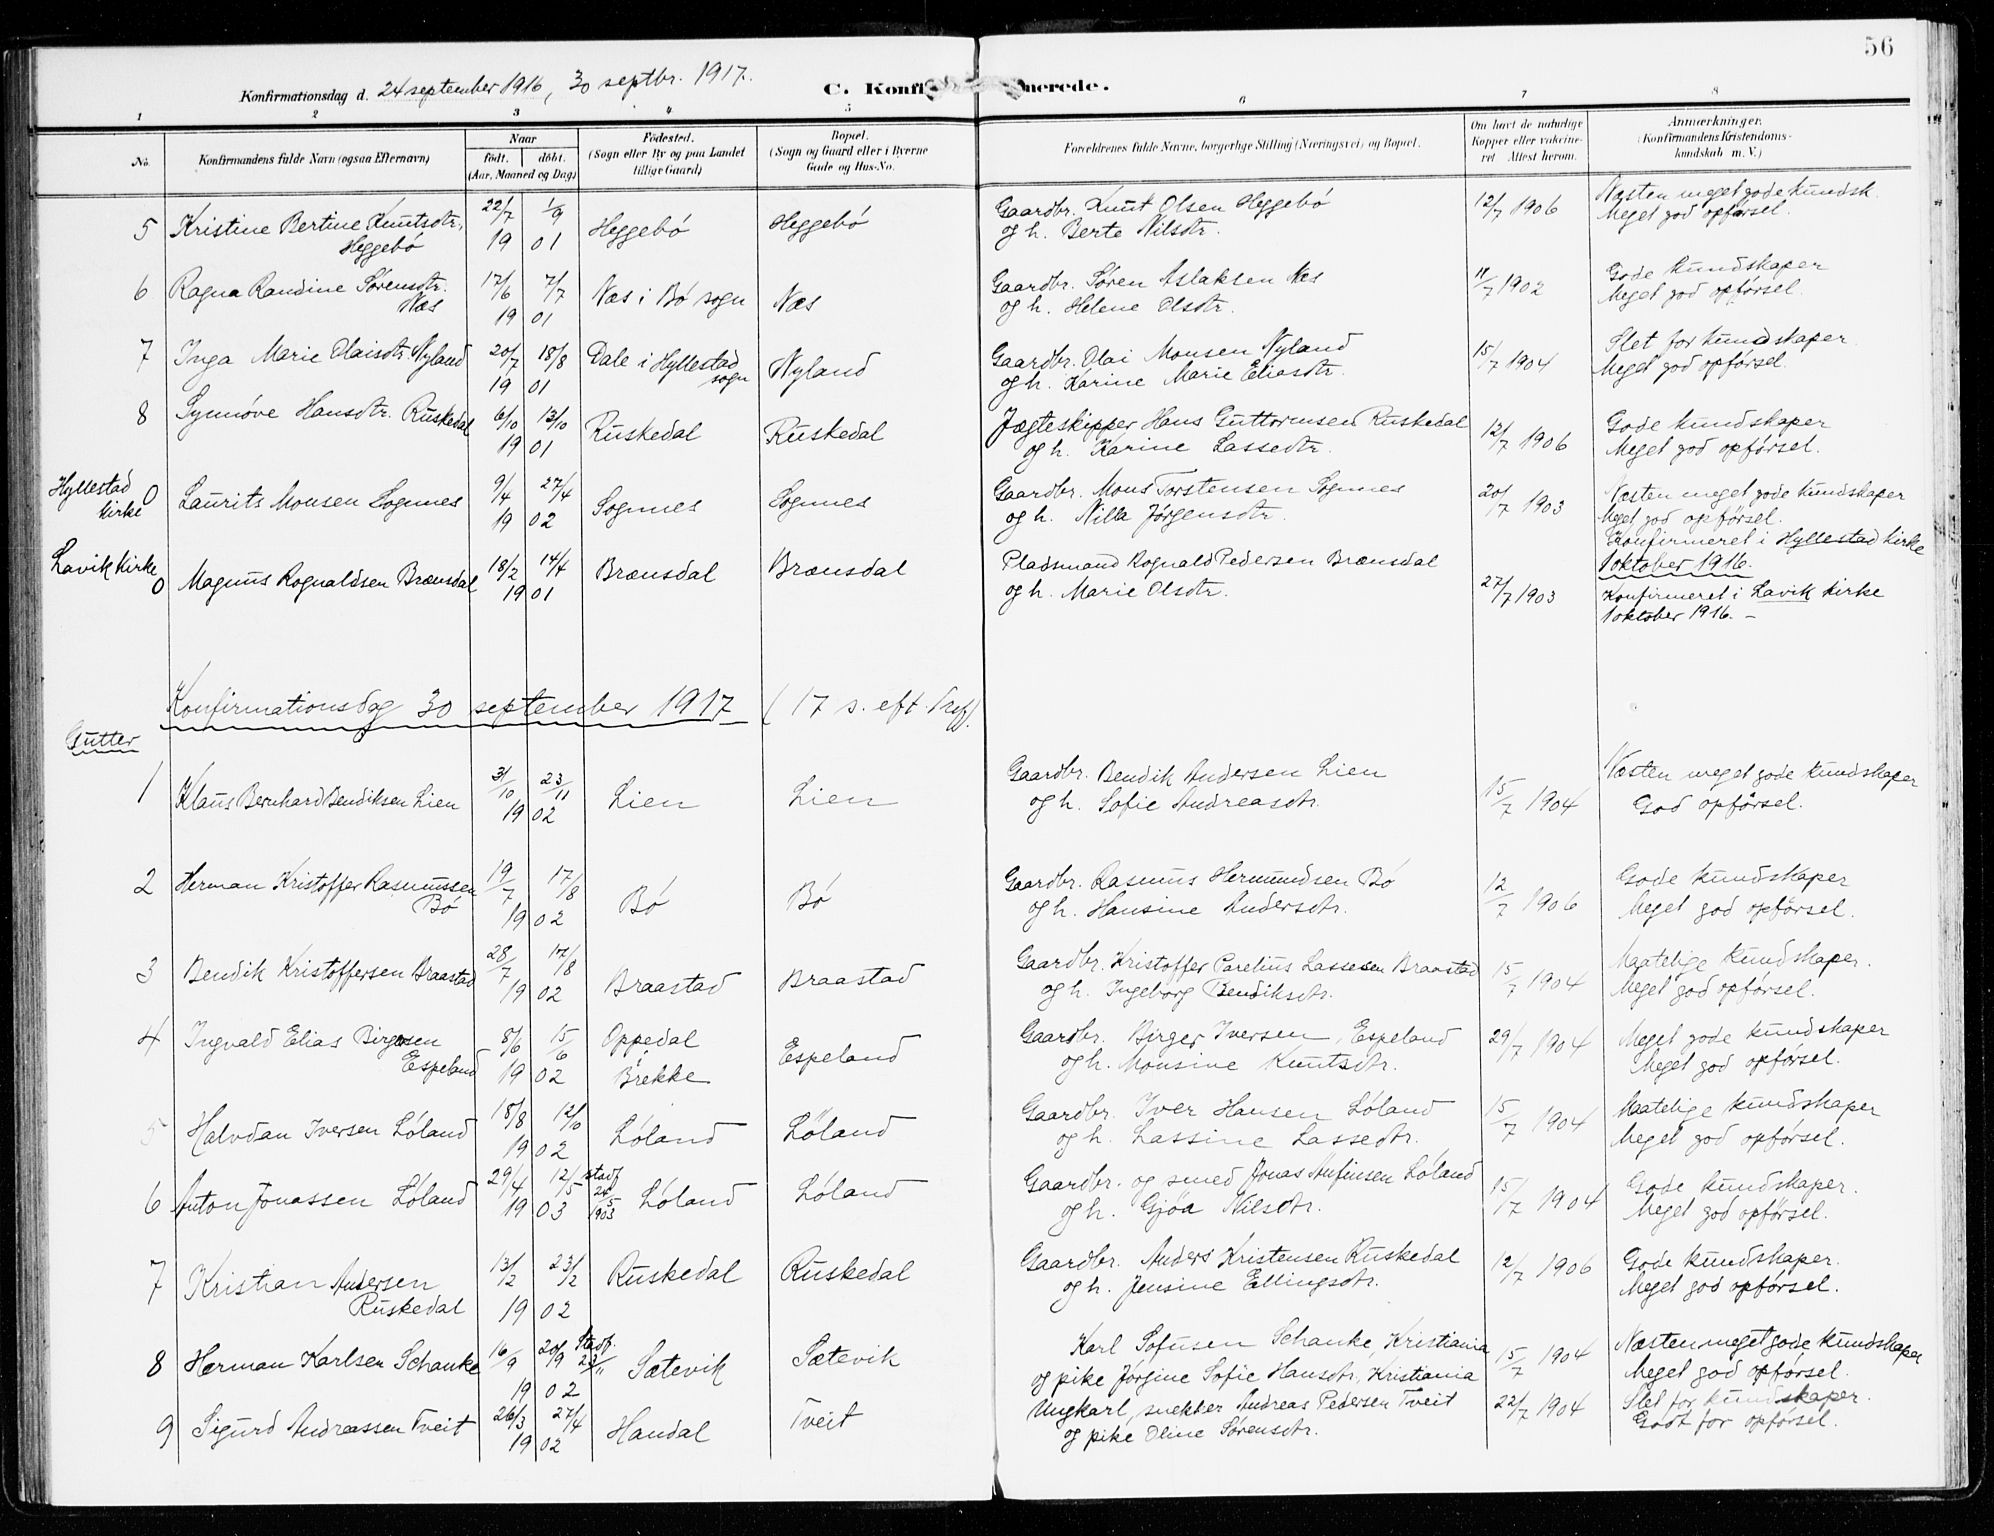 56
Konfirmationsdag d. 24 september 1916, 30 septbr. 1917.
C. Konfi merede.
1 2 3 4 5 6 7 8
No. Konfirmandens fulde Navn (ogsaa Efternavn) Naar födt. döbt. (Aar, Maaned og Dag) Födested. (Sogn eller By og paa Landet tillige Gaard) Bopæl. (Sogn og Gaard eller i Byerne Gade og Hus-No. Forældrenes fulde Navne, borgerlige Stilling (Næringsvei) og Bopæl. Om havt de naturlige Kopper eller vakcineret. Attest herom. Anmærkninger. (Konfirmandens Kristendomskundskab m. V.)
5 Kristine Bertine Knutsdtr. 22/7 1/9 Heggebö Heggebö Gaardbr. Knut Olsen Heggebö 12/7 1906 Næsten meget gode kundsk.
Heggebö 19 01 og h. Berte Nilsdtr. Meget god opförsel.
6 Ragna Randine Sörensdtr. 17/6 7/7 Næs i Bö sogn Næs Gaardbr. Sören Aslaksen Næs 11/7 1902 Gode kundskaper
Næs 19 01 og h. Helene Olsdtr. Meget god opförsel.
7 Inga Marie Olaisdtr. Nyland 20/7 18/8 Dale i Hyllestad sogn Nyland Gaardbr. Olai Monsen Nyland 15/7 1904 Slet for kundskaper
19 01 og h. Karine Marie Eliasdtr. Meget god opförsel.
8 Synnöve Hansdtr. Ruskedal 6/10 13/10 Ruskedal Ruskedal Jægteskipper Hans Guttormsen Ruskedal 12/7 1906 Gode kundskaper
19 01 og h. Karine Lassedtr. Meget god opförsel.
Hyllestad kirke 0 Laurits Monsen Sognnes 9/4 27/4 Sognnes Sognnes Gaardbr. Mons Torstensen Sognnes 20/7 1903 Næsten meget gode kundskaper
19 02 og h. Nilla Jörgensdtr. Meget god opförsel.
Konfirmeret i Hyllestad kirke
1 oktober 1916.
Lavik kirke 0 Magnus Rognaldsen Brænsdal 18/2 14/4 Brænsdal Brænsdal Pladsmand Rognald Pedersen Brænsdal
19 01 og h. Marie Olsdtr. 27/7 1903 Konfirmeret i Lavik kirke
1 oktober 1916. –
Konfirmationsdag 30 september 1917 (17 s. eft. Tref.)
Gutter
1 Klaus Bernhard Bendiksen Lien 31/10 23/11 Lien Lien Gaardbr. Bendik Andersen Lien 15/7 1904 Næsten meget gode kundskaper
19 02 og h. Sofie Andreasdtr. God opförsel.
2 Herman Kristoffer Rasmussen 19/7 17/8 Bö Bö Gaardbr. Rasmus Hermundsen Bö 12/7 1906 Gode kundskaper
Bö 19 02 og h. Hansine Andersdtr. Meget god opförsel.
3 Bendik Kristoffersen Braastad 28/7 17/8 Braastad Braastad Gaardbr. Kristoffer Parelius Lassesen Braastad 15/7 1904 Maatelige kundskaper.
19 02 og h. Ingeborg Bendiksdtr. Meget god opförsel.
4 Ingvald Elias Birgersen 8/6 15/6 Oppedal Espeland Gaardbr. Birger Iversen, Espeland 29/7 1904 Meget gode kundskaper
Espeland 19 02 Brekke og h. Monsine Knutsdtr. Meget god opförsel.
5 Halvdan Iversen Löland 18/8 12/10 Löland Löland Gaardbr. Iver Hansen Löland 15/7 1904 Maatelige kundskaper
19 02 og h. Lassine Lassedtr. Meget god opförsel.
6 Anton Jonassen Löland 29/4 12/5 stadf. 24/5 1903 Löland Löland Gaardbr. og smed Jonas Anfinsen Löland 15/7 1904 Gode kundskaper.
19 03 og h. Gjöa Nilsdtr. Meget god opförsel.
7 Kristian Andersen 13/2 23/2 Ruskedal Ruskedal Gaardbr. Anders Kristensen Ruskedal 12/7 1906 Gode kundskaper.
Ruskedal 19 02 og h. Jensine Ellingsdtr. Meget god opförsel.
8 Herman Karlsen Schanke 16/9 20/9 Stadf. 23/11 Sætevik Sætevik Karl Sofusen Schanke, Kristiania 15/7 1904 Næsten meget gode kundskaper
19 02 og pike Jörgine Sofie Hansdtr, Kristiania Meget god opförsel.
9 Sigurd Andreassen Tveit 26/3 27/4 Handal Tveit Ungkarl, snekker Andreas Pedersen Tveit 22/7 1904 Slet for kundskaper.
19 02 og pike Oline Sörensdtr. Godt for opförsel.